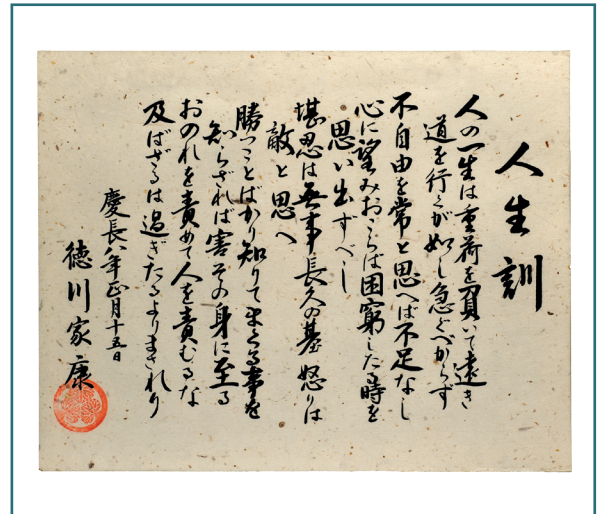 人生訓
人の一生は重荷を負いて遠き
道を行くが如し急ぐべからず
不自由を常と思へば不足なし
心に望みおこらば困窮したる時を
思い出すべし
堪忍は無事長久の基 怒りは
敵と思へ
勝つことばかり知りてまくる事を
知らざれば害その身に至る
おのれを責めて人を責むるな
及ばざるは過ぎたるよりまされり
慶長八年正月十五日
徳川家康